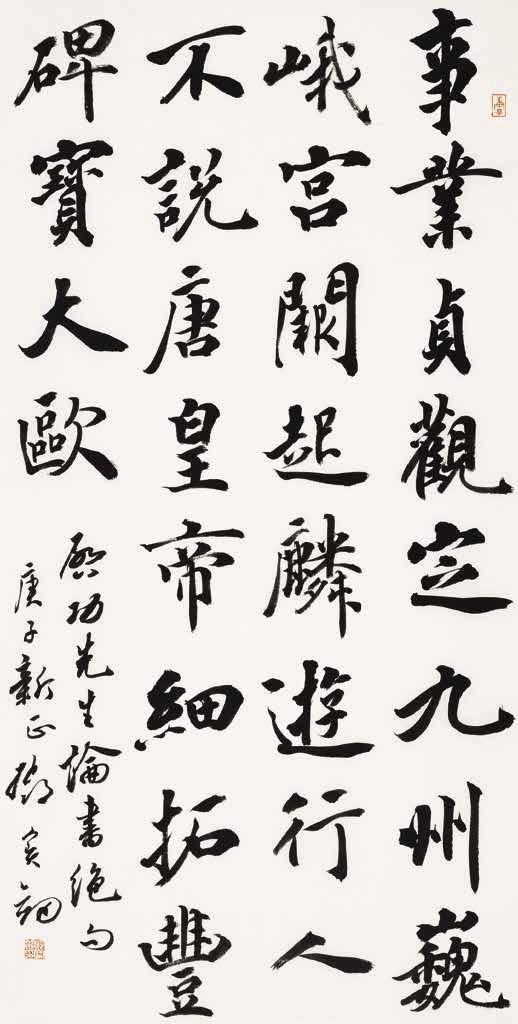 事業貞觀定九州巍
峨宮闕起麟遊行人
不說唐皇帝細拓豐
碑寶大歐
啓功先生論書絕句
庚子新正鄧寶劍